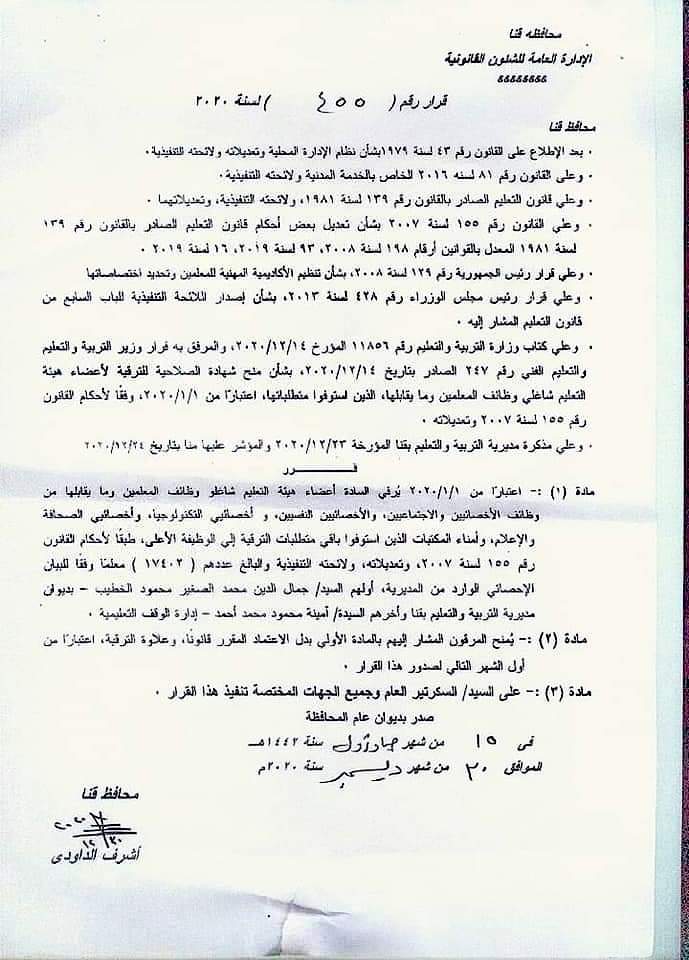 محافظه قنا
الإدارة العامة للشئون القانونية
&&&&&&&&
قرار رقم ( ٤٥٥ ) لسنة ٢٠٢٠
محافظ قنا
• بعد الإطلاع على القانون رقم ٤٣ لسنة ١٩٧٩بشأن نظام الإدارة المحلية وتعديلاته ولائحته التنفيذية٠
• وعلى القانون رقم ٨١ لسنه ٢٠١٦ الخاص بالخدمة المدنية ولائحته التنفيذية٠
• وعلي قانون التعليم الصادر بالقانون رقم ١٣٩ لسنة ١٩٨١، ولائحته التنفيذية، وتعديلاتهما ٠
• وعلي القانون رقم ١٥٥ لسنة ٢٠٠٧ بشأن تعديل بعض أحكام قانون التعليم الصادر بالقانون رقم ١٣٩
لسنة ١٩٨١ المعدل بالقوانين أرقام ١٩٨ لسنة ٢٠٠٨، ٩٣ لسنة ٢٠١٩، ١٦ لسنة ٢٠١٩ ٠
• وعلي قرار رئيس الجمهورية رقم ١٢٩ لسنة ٢٠٠٨، بشأن تنظيم الأكاديمية المهنية للمعلمين وتحديد اختصاصاتها
• وعلي قرار رئيس مجلس الوزراء رقم ٤٢٨ لسنة ٢٠١٣، بشأن إصدار اللائحة التنفيذية للباب السابع من
قانون التعليم المشار إليه ٠
• وعلي كتاب وزارة التربية والتعليم رقم ١١٨٥٦ المؤرخ ٢٠٢٠/١٢/١٤، والمرفق به قرار وزير التربية والتعليم
والتعليم الفني رقم ٢٤٧ الصادر بتاريخ ٢٠٢٠/١٢/١٤، بشأن منح شهادة الصلاحية للترقية لأعضاء هيئة
التعليم شاغلي وظائف المعلمين وما يقابلها، الذين استوفوا متطلباتها، اعتبارًا من ٢٠٢٠/١/١، وفقًا لأحكام القانون
رقم ١٥٥ لسنة ٢٠٠٧ وتعديلاته ٠
• وعلي مذكرة مديرية التربية والتعليم بقنا المؤرخة ٢٠٢٠/١٢/٢٣ والمؤشر عليها منا بتاريخ ٢٠٢٠/١٢/٢٤
قـــــــــــرر
مادة (١) :- اعتبارًا من ٢٠٢٠/١/١ يُرقي السادة أعضاء هيئة التعليم شاغلو وظائف المعلمين وما يقابلها من
وظائف الأخصائيين والاجتماعيين، والأخصائيين النفسيين، و أخصائيي التكنولوجيا، وأخصائيي الصحافة
والإعلام، وأمناء المكتبات الذين استوفوا باقي متطلبات الترقية إلي الوظيفة الأعلى، طبقًا لأحكام القانون
رقم ١٥٥ لسنة ٢٠٠٧، وتعديلاته، ولائحته التنفيذية والبالغ عددهم ( ١٧٤٠٢ ) معلمًا وفقًا للبيان
الإحصائي الوارد من المديرية، أولهم السيد/ جمال الدين محمد الصغير محمود الخطيب – بديوان
مديرية التربية والتعليم بقنا وأخرهم السيدة/ أمينة محمود محمد أحمد – إدارة الوقف التعليمية ٠
مادة (٢) :- يُمنح المرقون المشار إليهم بالمادة الأولي بدل الاعتماد المقرر قانونًا، وعلاوة الترقية، اعتبارًا من
أول الشهر التالي لصدور هذا القرار ٠
مادة (٣) :- على السيد/ السكرتير العام وجميع الجهات المختصة تنفيذ هذا القرار ٠
صدر بديوان عام المحافظة
فى ١٥ من شهر جماد أول سنة ١٤٤٢هـ
الموافق ٣٠ من شهر ديسمبر سنة ٢٠٢٠م
محافظ قنا
أشرف الداودى